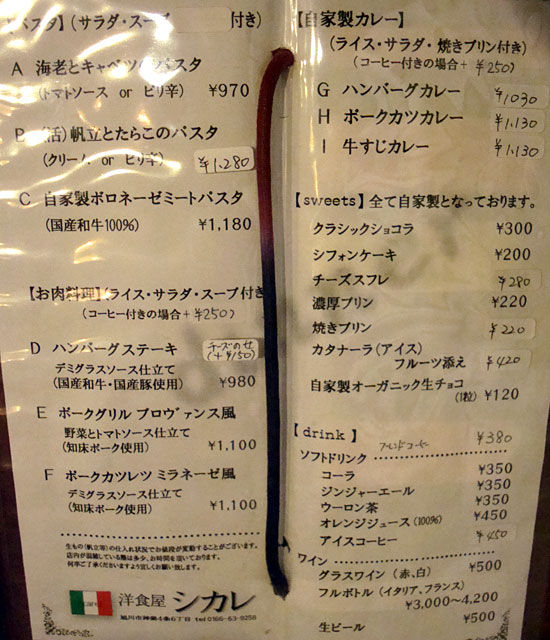 【パスタ】(サラダ・スープ 付き)
A 海老とキャベツのパスタ
(トマトソース or ピリ辛) ¥970
B (活)帆立とたらこのパスタ
(クリーム or ピリ辛) ¥1,280
C 自家製ボロネーゼミートパスタ
(国産和牛100%) ¥1,180
【お肉料理】(ライス・サラダ・スープ付き
(コーヒー付きの場合+¥250)
D ハンバーグステーキ チーズのせ
(+¥150)
デミグラスソース仕立て
(国産和牛・国産豚使用) ¥980
E ポークグリル プロヴァンス風
野菜とトマトソース仕立て
(知床ポーク使用) ¥1,100
F ポークカツレツ ミラネーゼ風
デミグラスソース仕立て
(知床ポーク使用) ¥1,100
生もの(帆立等)の仕入れ状況でお値段が変動することがございます。
店内が混雑している際は多少、お時間を頂いております。
何卒ご了承くださいますよう宜しくお願い致します。
洋食屋 シカレ
旭川市神楽4条6丁目 tel 0166-63-9258
【自家製カレー】
(ライス・サラダ・焼きプリン付き)
(コーヒー付きの場合+ ¥250)
G ハンバーグカレー ¥1030
H ポークカツカレー ¥1,130
I 牛すじカレー ¥1,130
【sweets】全て自家製となっております。
クラシックショコラ ¥300
シフォンケーキ ¥200
チーズスフレ ¥280
濃厚プリン ¥220
焼きプリン ¥220
カタナーラ(アイス)
フルーツ添え ¥420
自家製オーガニック生チョコ
(1粒) ¥120
【drink】 ブレンドコーヒー ¥380
ソフトドリンク
コーラ ¥350
ジンジャーエール ¥350
ウーロン茶 ¥350
オレンジジュース(100%) ¥450
アイスコーヒー ¥450
ワイン
グラスワイン (赤、白) ¥500
フルボトル(イタリア、フランス)
¥3,000〜4,200
生ビール ¥500